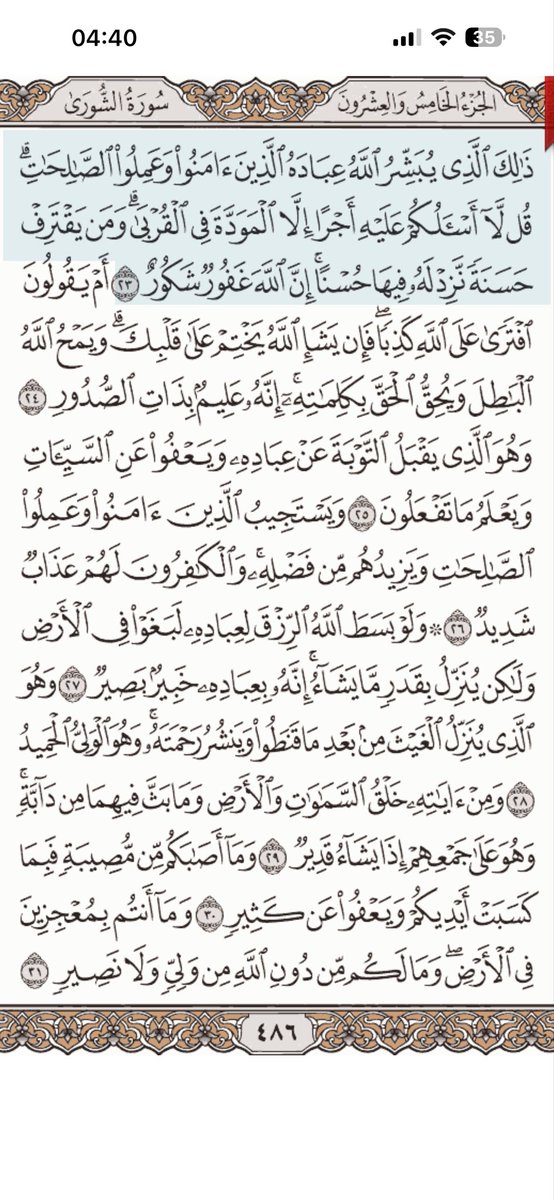 04:40 35
الجزء الخامس والعشرون سورة الشورى
ذَٰلِكَ ٱلَّذِي يُبَشِّرُ ٱللَّهُ عِبَادَهُ ٱلَّذِينَ ءَامَنُواْ وَعَمِلُواْ ٱلصَّٰلِحَٰتِۗ
قُل لَّآ أَسْـَٔلُكُمْ عَلَيْهِ أَجْرًا إِلَّا ٱلْمَوَدَّةَ فِي ٱلْقُرْبَىٰۗ وَمَن يَقْتَرِفْ
حَسَنَةً نَّزِدْ لَهُۥ فِيهَا حُسْنًاۚ إِنَّ ٱللَّهَ غَفُورٌ شَكُورٌ ٢٣ أَمْ يَقُولُونَ
ٱفْتَرَىٰ عَلَى ٱللَّهِ كَذِبًاۖ فَإِن يَشَإِ ٱللَّهُ يَخْتِمْ عَلَىٰ قَلْبِكَۗ وَيَمْحُ ٱللَّهُ
ٱلْبَٰطِلَ وَيُحِقُّ ٱلْحَقَّ بِكَلِمَٰتِهِۦٓۚ إِنَّهُۥ عَلِيمٌۢ بِذَاتِ ٱلصُّدُورِ ٢٤
وَهُوَ ٱلَّذِي يَقْبَلُ ٱلتَّوْبَةَ عَنْ عِبَادِهِۦ وَيَعْفُواْ عَنِ ٱلسَّيِّـَٔاتِ
وَيَعْلَمُ مَا تَفْعَلُونَ ٢٥ وَيَسْتَجِيبُ ٱلَّذِينَ ءَامَنُواْ وَعَمِلُواْ
ٱلصَّٰلِحَٰتِ وَيَزِيدُهُم مِّن فَضْلِهِۦۚ وَٱلْكَٰفِرُونَ لَهُمْ عَذَابٌ
شَدِيدٌ ٢٦ ۞ وَلَوْ بَسَطَ ٱللَّهُ ٱلرِّزْقَ لِعِبَادِهِۦ لَبَغَوْاْ فِي ٱلْأَرْضِ
وَلَٰكِن يُنَزِّلُ بِقَدَرٍ مَّا يَشَآءُۚ إِنَّهُۥ بِعِبَادِهِۦ خَبِيرٌۢ بَصِيرٌ ٢٧ وَهُوَ
ٱلَّذِي يُنَزِّلُ ٱلْغَيْثَ مِنۢ بَعْدِ مَا قَنَطُواْ وَيَنشُرُ رَحْمَتَهُۥۚ وَهُوَ ٱلْوَلِيُّ ٱلْحَمِيدُ
٢٨ وَمِنْ ءَايَٰتِهِۦ خَلْقُ ٱلسَّمَٰوَٰتِ وَٱلْأَرْضِ وَمَا بَثَّ فِيهِمَا مِن دَآبَّةٍۚ
وَهُوَ عَلَىٰ جَمْعِهِمْ إِذَا يَشَآءُ قَدِيرٌ ٢٩ وَمَآ أَصَٰبَكُم مِّن مُّصِيبَةٍ فَبِمَا
كَسَبَتْ أَيْدِيكُمْ وَيَعْفُواْ عَن كَثِيرٍ ٣٠ وَمَآ أَنتُم بِمُعْجِزِينَ
فِي ٱلْأَرْضِۖ وَمَا لَكُم مِّن دُونِ ٱللَّهِ مِن وَلِيٍّ وَلَا نَصِيرٍ ٣١
٤٨٦